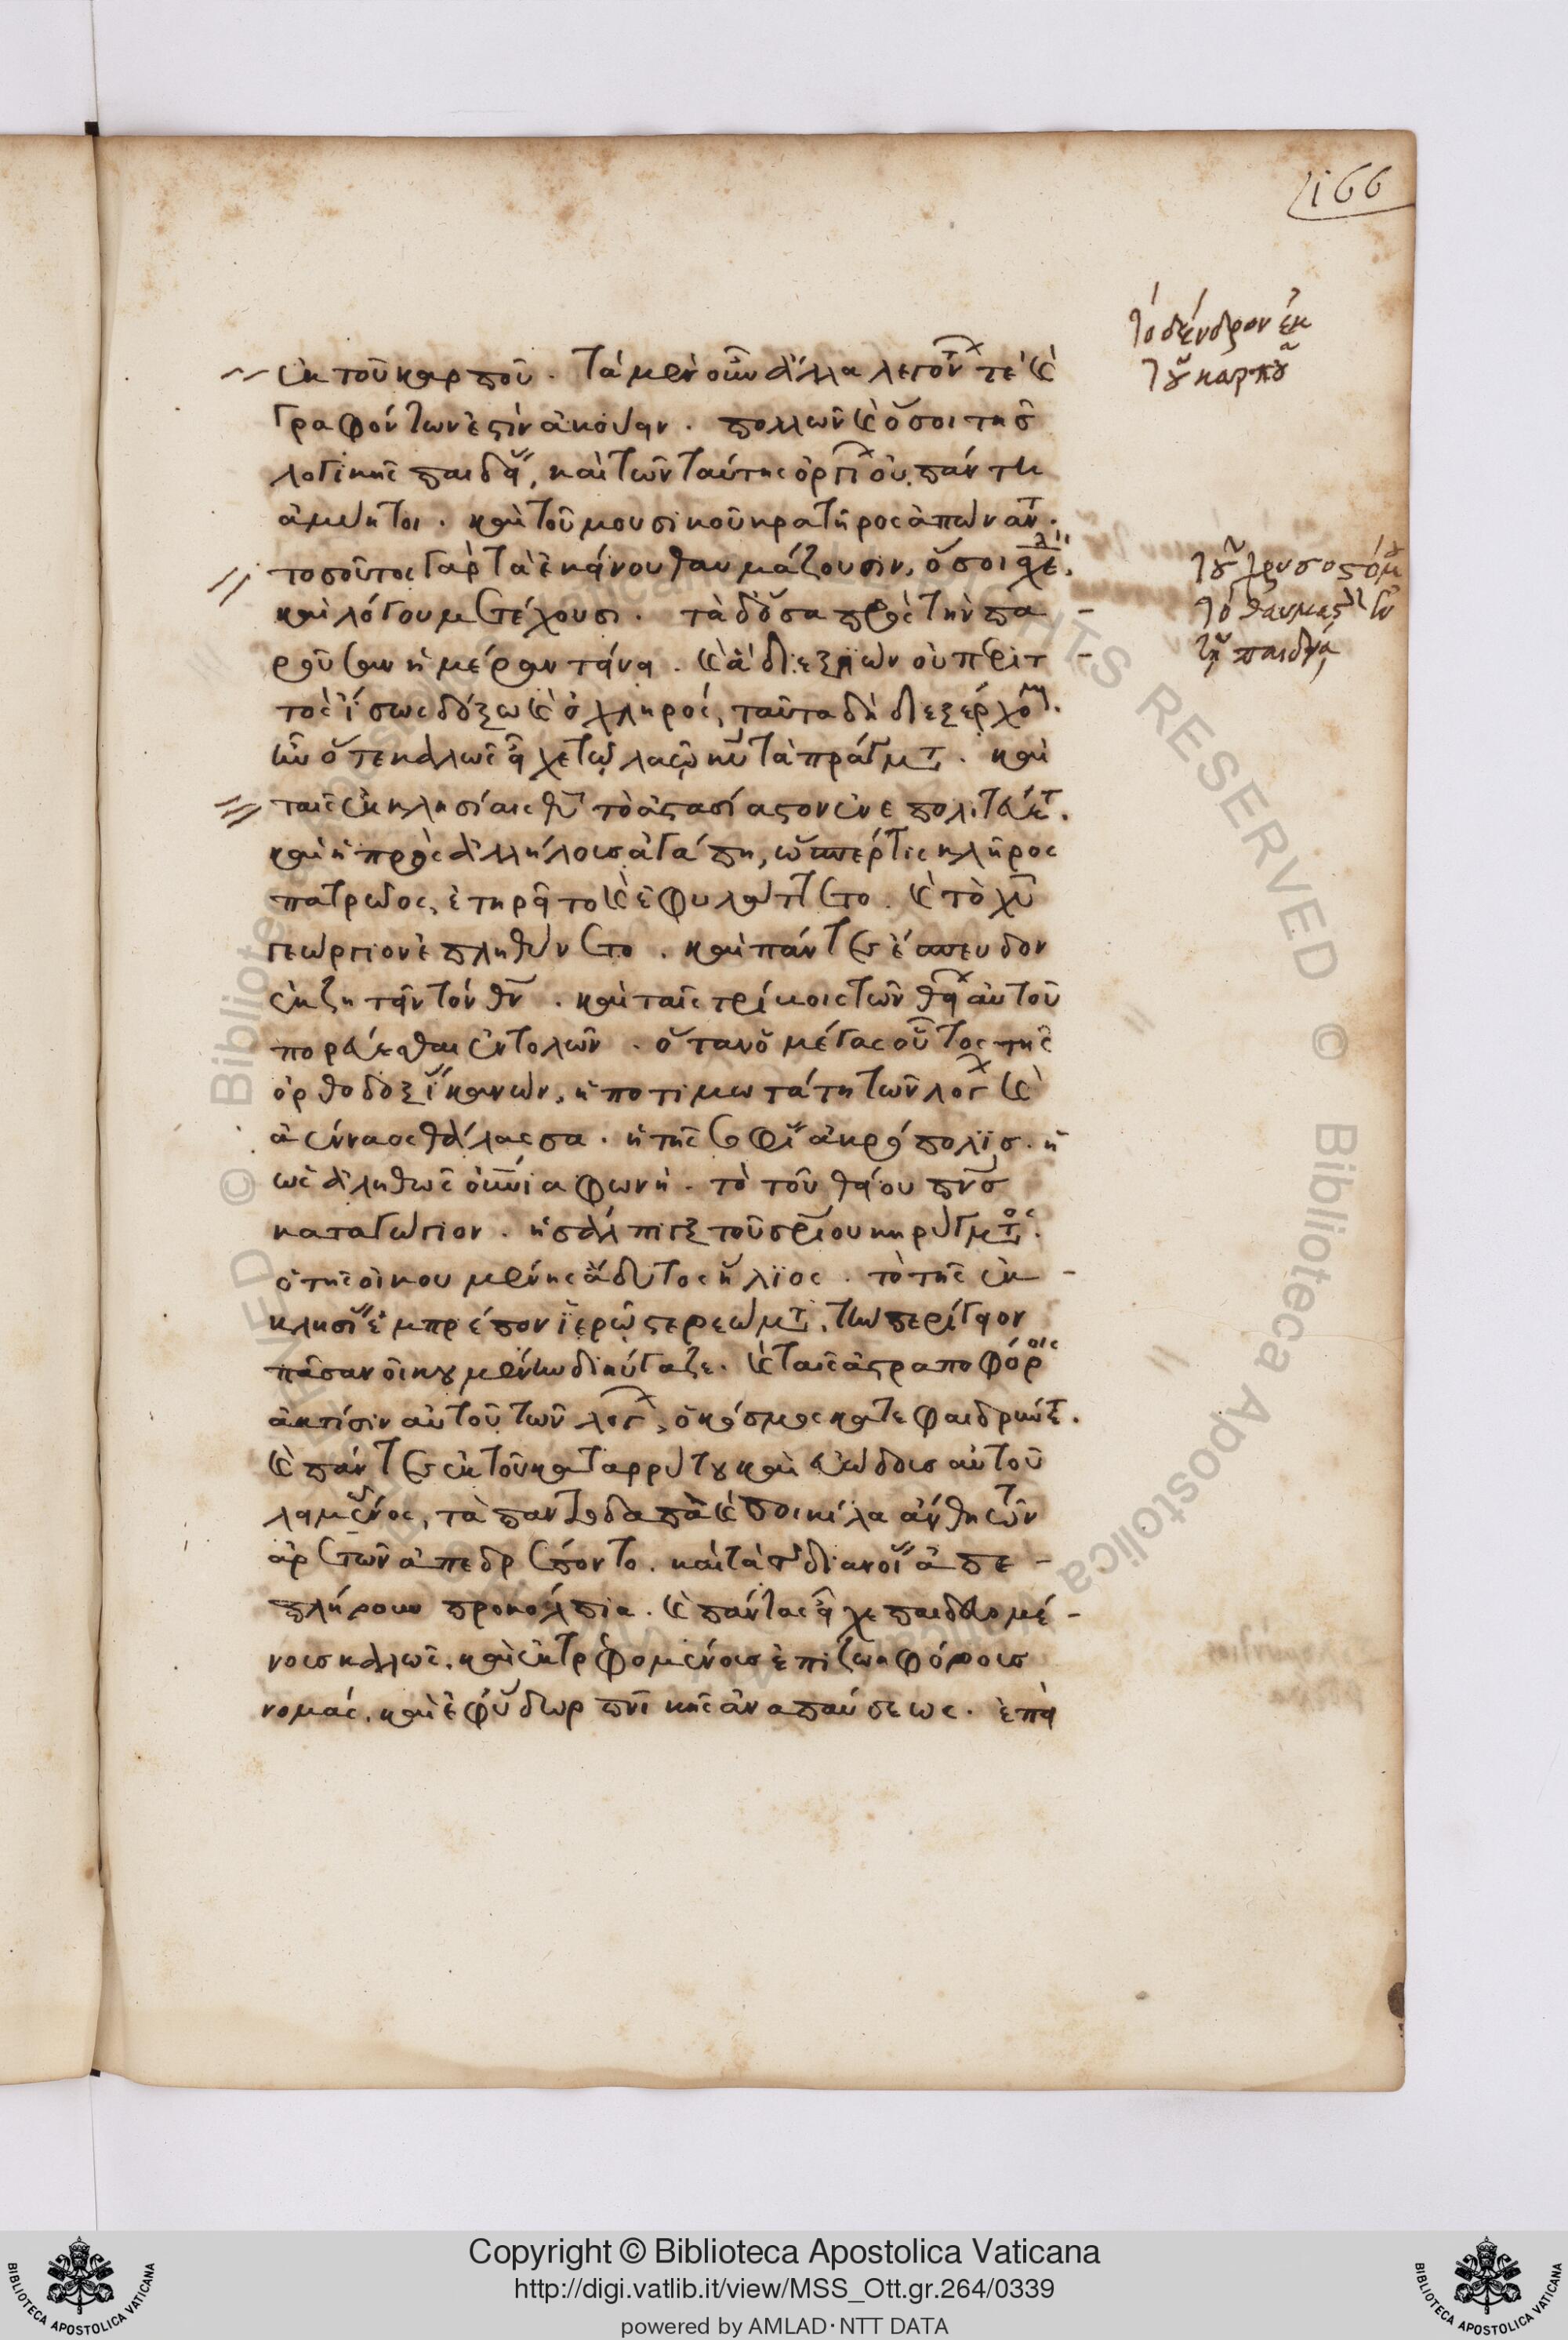 166
τὸ δένδρον ἐκ
τοῦ καρποῦ
ἐκ τοῦ καρποῦ. τὰ μὲν οὖν ἄλλα λεγόντων τὲ καὶ
γραφόντων ἐστὶν ἀκούειν. πολλῶν καὶ ὅσοι τῆς
λογικῆς παιδείας, καὶ τῶν ταύτης ὀργίων οὐ πάντη
ἀμύητοι. καὶ τοῦ μουσικοῦ κρατῆρος ἀπώναντο.
τοσοῦτος γὰρ τὰ ἐκείνου θαυμάζουσιν, ὅσοι
καὶ λόγου μετέχουσι. τὰ δ' ὅσα πρὸς τὴν πα-
ροῦσαν ἡμέραν τείνει. καὶ ἃ διεξιὼν οὐ περιτ-
τὸς ἴσως δόξω καὶ ὀχληρός, ταῦτα δὴ διεξέρχομαι.
ἦν ὅτε καλῶς εἶχε τῷ λαῷ κυρίου τὰ πράγματα. καὶ
ταῖς ἐκκλησίαις θεοῦ τὸ ἀστασίαστον ἐνεπολιτεύετο.
καὶ ἡ πρὸς ἀλλήλους ἀγάπη, ὥσπέρ τις κλῆρος
πατρῷος, ἐτηρεῖτο καὶ ἐφυλάττετο. καὶ τὸ χριστοῦ
γεώργιον ἐπληθύνετο. καὶ πάντες ἔσπευδον
ἐκζητεῖν τὸν θεόν. καὶ ταῖς τρίβοις τῶν θείων αὐτοῦ
πορεύεσθαι ἐντολῶν. ὅταν ὁ μέγας οὗτος τῆς
ὀρθοδοξίας κανών, ἡ ποτιμωτάτη τῶν λόγων καὶ
ἀένναος θάλασσα. ἡ τῆς σοφίας ἀκρόπολις. ἡ
ὡς ἀληθῶς οὐρανία φωνή. τὸ τοῦ θείου πνεύματος
καταγώγιον. ἡ σάλπιγξ τοῦ σωτηρίου κηρύγματος.
ὁ τῆς οἰκουμένης ἄδυτος ἥλιος. τὸ τῆς ἐκ-
κλησίας ἐμπρέπον ἱερῶς στερέωμα, τὴν περίγειον
πᾶσαν οἰκουμένην διηύγαζε. καὶ ταῖς ἀστραπηφόροις
ἀκτῖσιν αὐτοῦ τῶν λόγων, ὁ κόσμος κατεφαιδρύνετο.
καὶ πάντες ἐκ τοῦ καταρρύτου καὶ εὐώδους αὐτοῦ
λειμῶνος, τὰ παντοδαπὰ καὶ ποικίλα ἄνθη τῶν
ἀρετῶν ἀπεδρέποντο. καὶ τὰ τῆς διανοίας ἀπε-
πλήρουν προκόλπια. καὶ πάντας εἶχε παιδευομέ-
νους καλῶς. καὶ ἐκτρεφομένους ἐπὶ ζωηφόρους
νομάς. καὶ ἐφ' ὕδωρ πνευματικῆς ἀναπαύσεως. ἐπεὶ
τοῦ χρυσοστόμου
τὸ θαυμαστὸν
τῇ παιδείᾳ
Copyright © Biblioteca Apostolica Vaticana
http://digi.vatlib.it/view/MSS_Ott.gr.264/0339
powered by AMLAD·NTT DATA